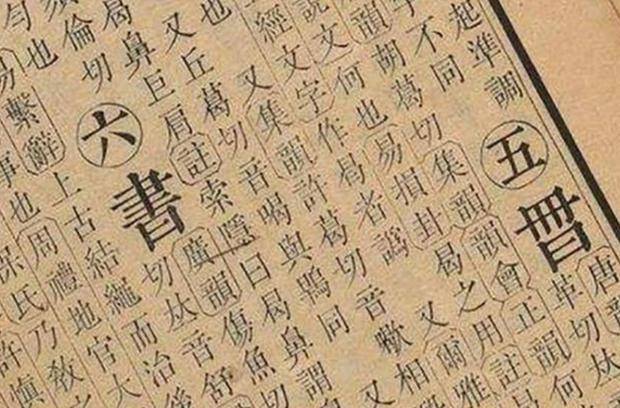 起準調
五曷唐韻
不同
革切𠀤
胡葛切集韻韻會正韻何
韻何也易損卦曷之用註曷
說文
經文字作曷者譌又爾雅
又集韻許葛切音歇相
又丘葛切音喝與鶡同又
也
曷鼻巨肩註索隱曰曷鼻謂
倫切
六書
廣韻傷魚切
切𠀤音舒
也
易繫辭上古結繩而治後
事也周禮地官大
保氏乃教之
許慎